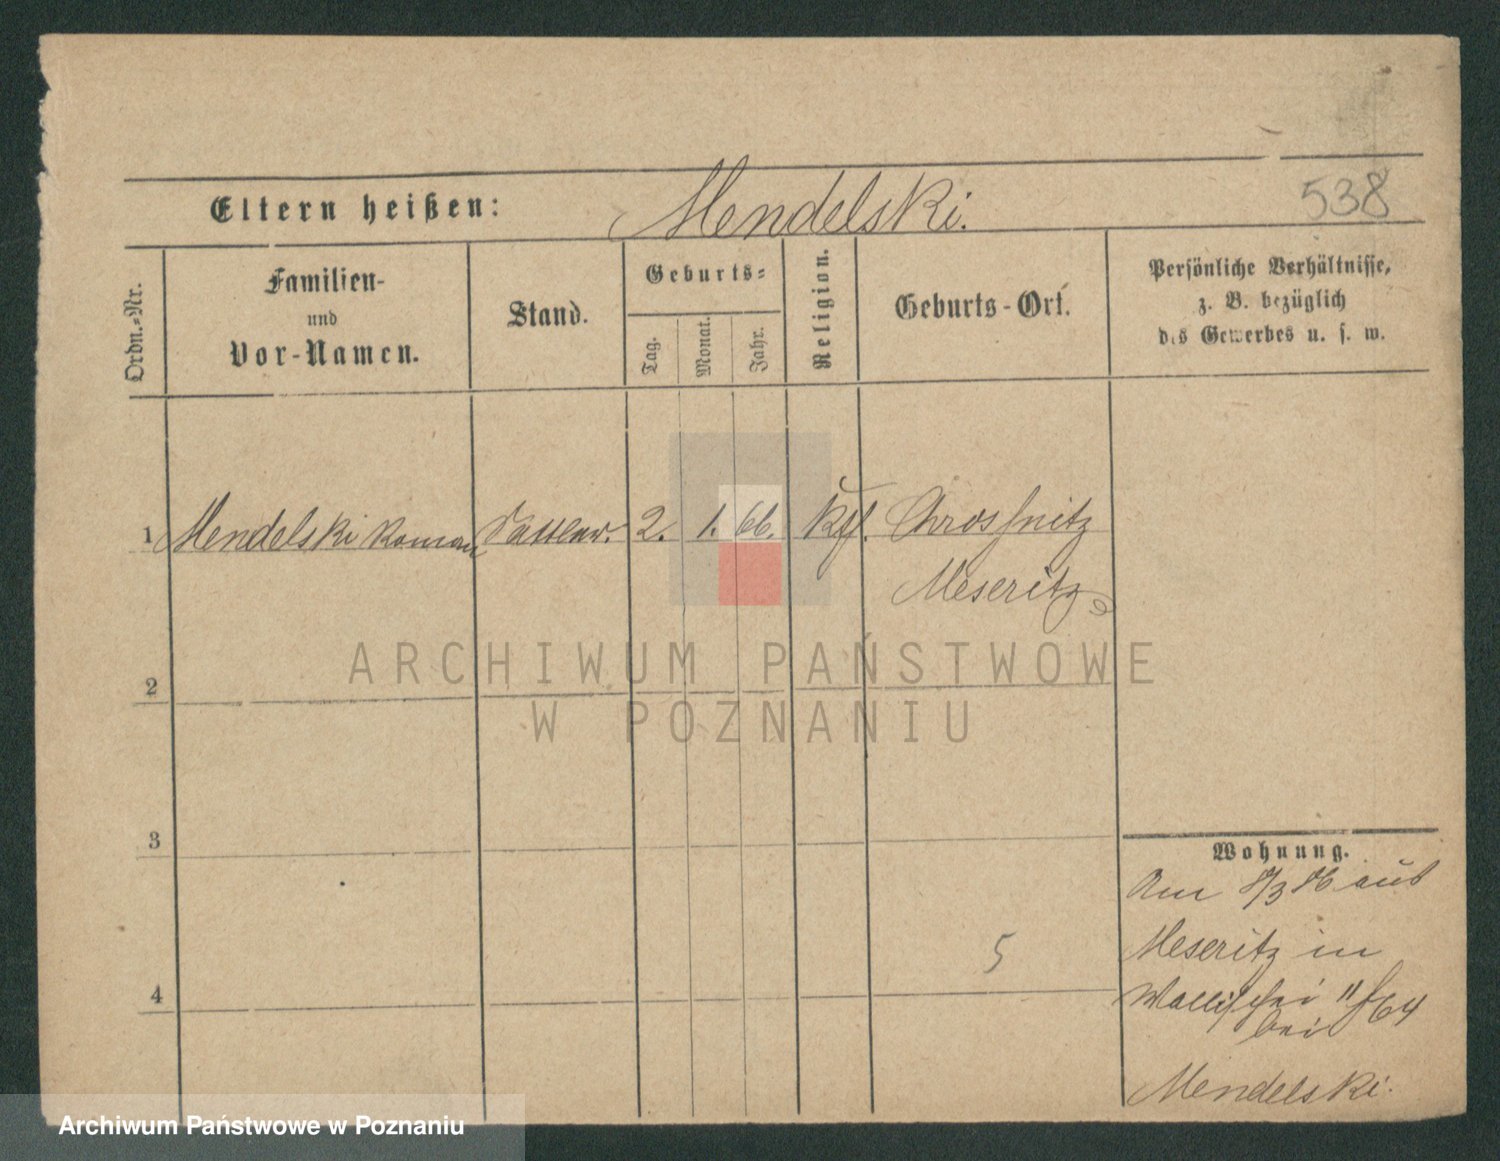 Eltern heißen: Mendelski. 538
Ordn.-Nr.
Familien-
und
Vor-Namen.
Stand.
Geburts-
Tag.
Monat.
Jahr.
Religion.
Geburts-Ort.
Persönliche Verhältnisse,
z. B. bezüglich
des Gewerbes u. s. w.
1 Mendelski Roman Sattler. 2. 1. 66. Kth. Chrosnitz
Meseritz
2
3
4
5
Wohnung.
Am 8/3 86 aus
Meseritz in
Wallischei
bei
Mendelski.
ARCHIWUM PAŃSTWOWE
W POZNANIU
Archiwum Państwowe w Poznaniu